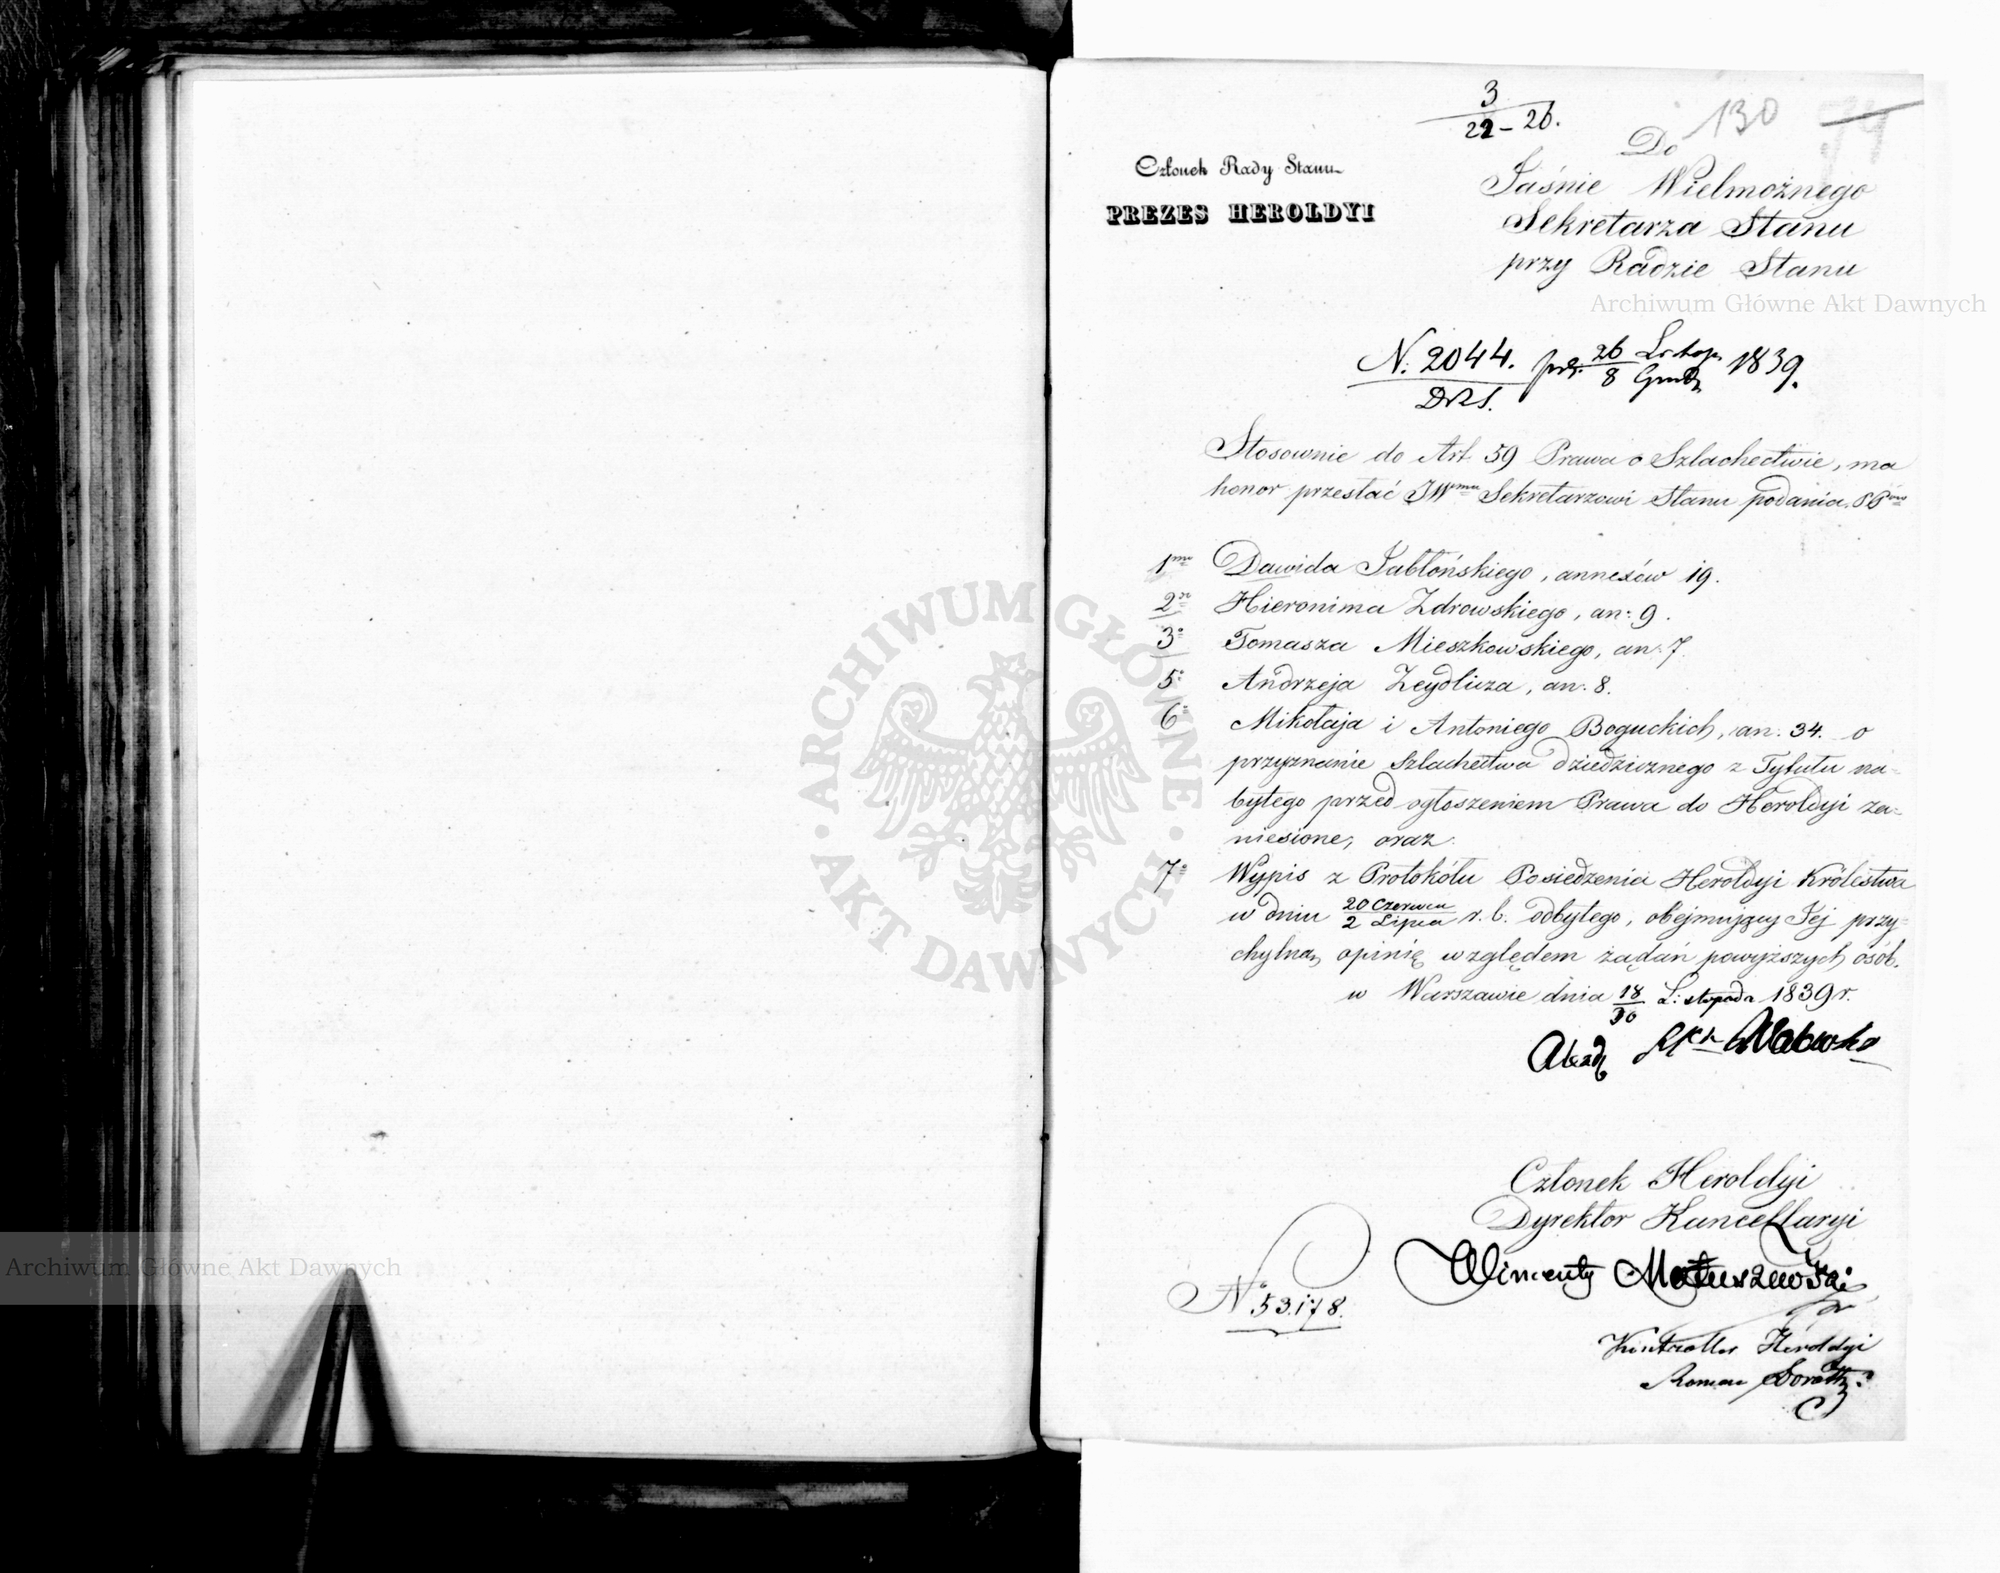 3
22 – 26.
130
Członek Rady Stanu
PREZES HEROLDYI
Do
Jaśnie Wielmożnego
Sekretarza Stanu
przy Radzie Stanu
Archiwum Główne Akt Dawnych
N. 2044. 26 Listop. 1839.
8 Grud.
Stosownie do Art 59 Prawa o Szlachectwie, ma
honor przesłać JWmu Sekretarzowi Stanu podania PPow
1mo Dawida Jabłońskiego, annexów 19.
2o Hieronima Zdrowskiego, an: 9.
3o Tomasza Mieszkowskiego, an: 7.
5o Andrzeja Zeydlicza, an: 8.
6o Mikołaja i Antoniego Boguckich, an: 34. o
przyznanie Szlachectwa dziedzicznego z Tytułu na-
bytego przed ogłoszeniem Prawa do Heroldyi za-
niesione, oraz
7o Wypis z Protokółu Posiedzenia Heroldyi Królestwa
w dniu 20 Czerwca / 2 Lipca r. b. odbytego, obejmujący Jej przy-
chylną opinię względem żądań powyższych osób.
w Warszawie dnia 18/30 Listopada 1839 r.
Członek Heroldyi
Dyrektor Kancellaryi
Wincenty Matuszewski
No 53.178.
Heroldyi
Roman
ARCHIWUM GŁÓWNE · AKT DAWNYCH ·
Archiwum Główne Akt Dawnych